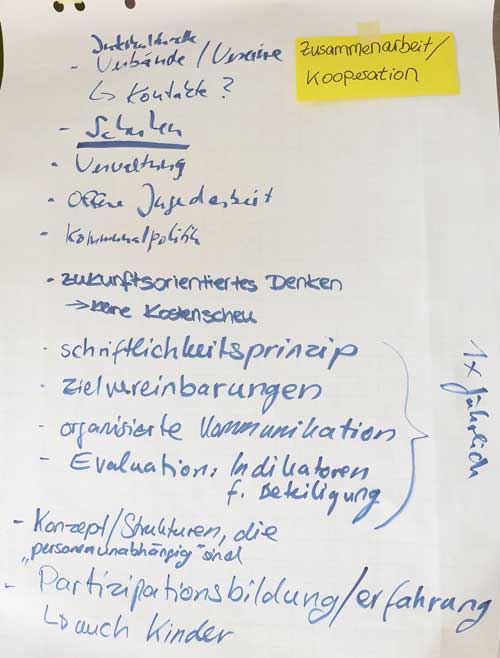 Zusammenarbeit/
Kooperation
Interkulturelle
- Verbände/Vereine
↳ Kontakte?
- Schulen
- Verwaltung
- Offene Jugendarbeit
- Kommunalpolitik
- zukunftsorientiertes Denken
→ keine Kostenscheu
- schriftlichkeitsprinzip
- Zielvereinbarungen
- organisierte Kommunikation
- Evaluation: Indikatoren
f. Beteiligung
1x jährlich
- Konzept/Strukturen, die
„personenunabhängig" sind
- Partizipationsbildung/erfahrung
↳ auch Kinder